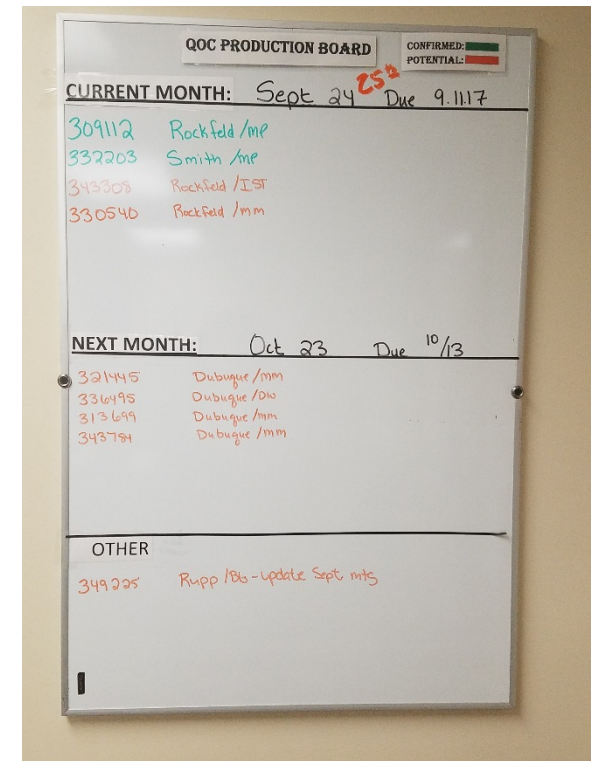 QOC PRODUCTION BOARD
CONFIRMED:
POTENTIAL:
CURRENT MONTH: Sept 24 25th Due 9.11.17
309112 Rockfeld /mp
332203 Smith /mp
343308 Rockfeld /IST
330540 Rockfeld /mm
NEXT MONTH: Oct 23 Due 10/13
321445 Dubuque /mm
336495 Dubuque /DW
313699 Dubuque /mm
343784 Dubuque /mm
OTHER
349225 Rupp /Bb - update Sept. mtg